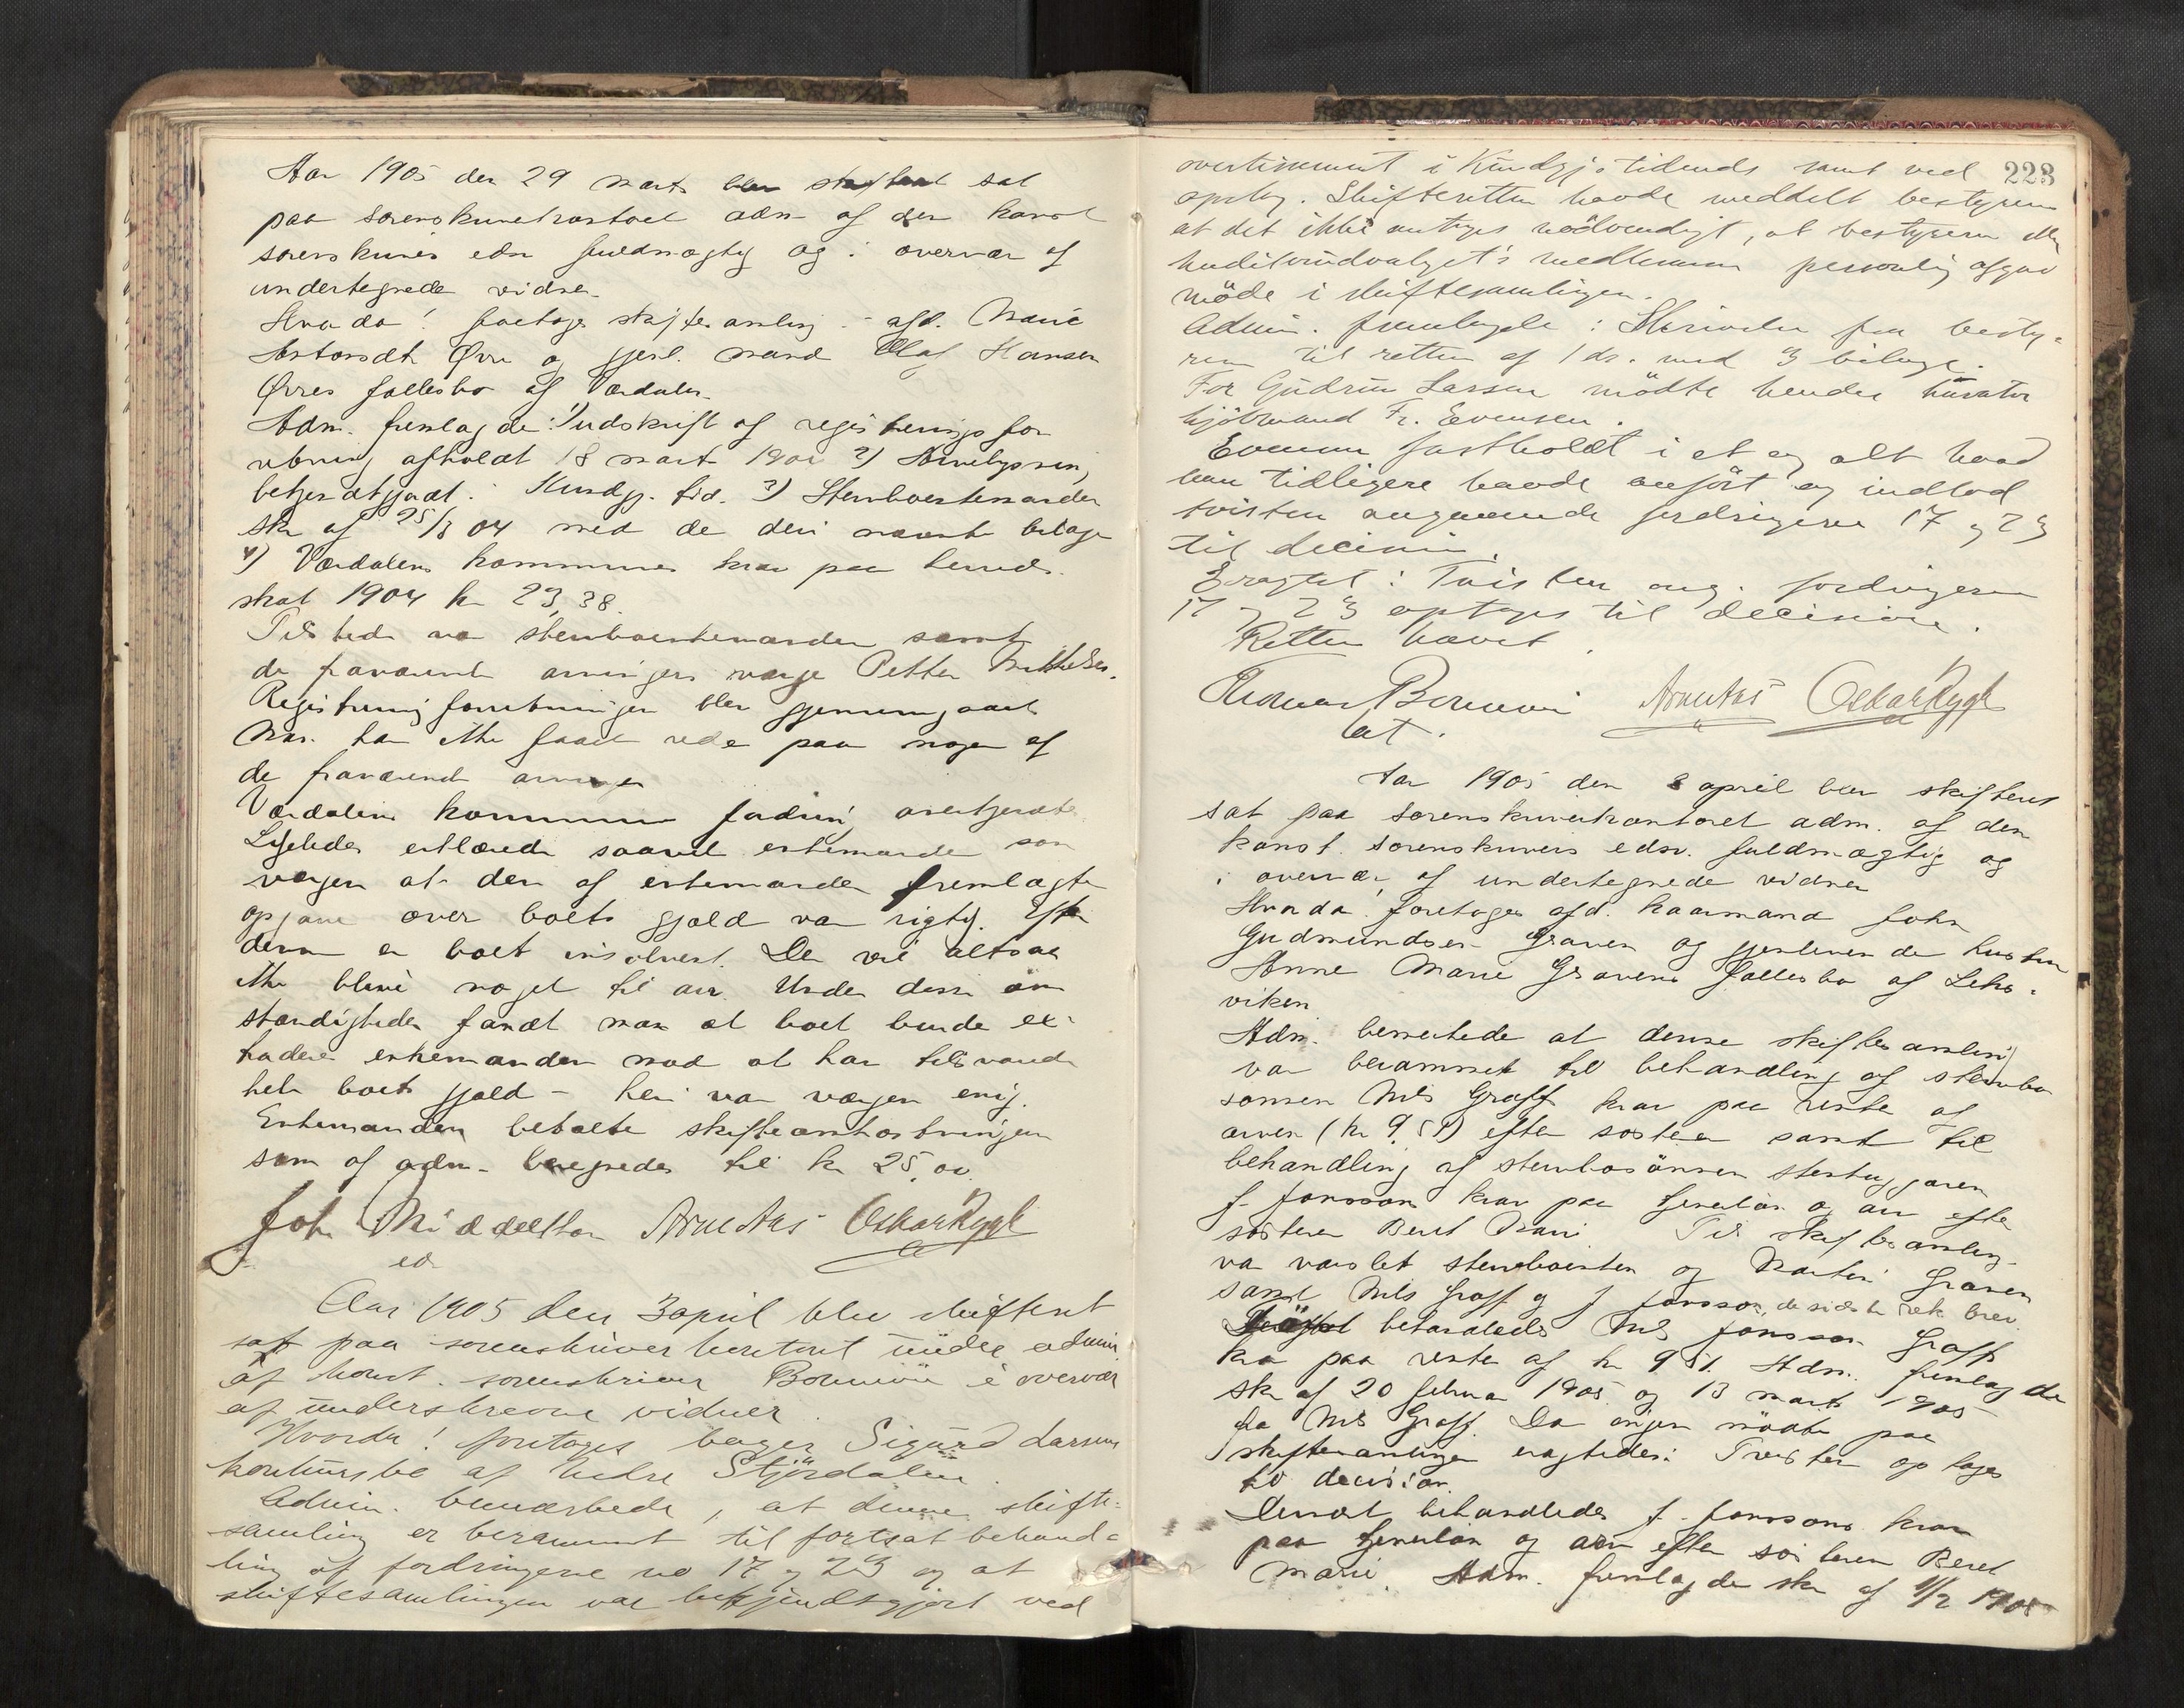 Aar 1905 den 29 marts blev skifteret sat
paa sorenskriverkontoret adm af den konst
sorenskrivers edsv fuldmægtig og i overvær af
undertegnede vidner
Hvorda! foretoges skiftesamling i afd. Marie
Øvre og gjenl. mand Olaf Hansen
Øvres fællesbo af Værdalen
Adm. fremlagde: 1) udskrift af registreringsfor
retning afholdt 18 marts 190 2)
i Kundgj. tid. 3) Stervboenkemanden
skr af 25/3 04 med de deri nævnte bilage
4) Værdalens kommunes krav paa herreds
skat 1904 kr 23,38.
Tilstede var stervboenkemanden samt
de fraværende arvingers værge Petter
Registreringsforretningen blev gjennemgaaet
Man har ikke faaet rede paa nogen af
de fraværende arvinger
Værdalens kommunes fordring
Ligeledes erklærede saavel enkemanden som
værgen at den af enkemanden fremlagte
opgave over boets gjæld var rigtig. Efter
denne er boet insolvent. Der vil altsaa
ikke blive noget til arv. Under disse om
stændigheder fandt man at boet burde ex
traderes enkemanden mod at han tilsvarede
hele boets gjæld - heri var værgen enig.
Enkemanden betalte skifteomkostningerne
som af adm. beregnedes til kr 25,00.
Joh Middelthon Arne Aas Oskar Rygh
ed
Aar 1905 den 3 april blev skifteret
sat paa sorenskriverkontoret under admin.
af konst. sorenskriver i overvær
af underskrevne vidner.
Hvorda! foretoges bager Sigurd Larsens
konkursbo af Nedre Stjørdalen.
Admin. bemærkede, at denne skifte-
samling er berammet til fortsat behand-
ling af fordringerne no 17 og 23 og at
skiftesamlingen var bekjendtgjort ved
223
avertissement i Kundgjs tidende samt ved
opslag. Skifteretten havde meddelt bestyreren
at det ikke antages nödvendigt, at bestyreren eller
kreditorudvalget's medlemmer personlig afgav
möde i skiftesamlingen.
Admin. fremlagde: Skrivelse fra besty-
reren til retten af 1 ds. med 3 bilage.
For Gudrun Larsen mödte hendes kurator
kjöbmand Fr. Evensen.
Evensen fastholdt i et og alt hvad
han tidligere havde anfört og indlod
tvisten angaaende fordringerne 17 og 23
til decision.
Eragtet: Tvisten ang. fordringerne
17 og 23 optages til decision.
Retten hævet.
Arne Aas Oskar Rygh
at.
Aar 1905 den 8 april blev skifteret
sat paa sorenskriverkontoret adm. af den
konst. sorenskrivers edsv. fuldmægtig og
i overvær af undertegnede vidner
Hvorda! foretoges afd. kaarmand John
Gudmundsen Graven og gjenlevende hustru
Anne Marie Gravens fællesbo af Leks-
viken
Adm. bemerkede at denne skiftesamling
var berammet til behandling af stervbo
sönnen Nils Graff krav paa rente af
arven (kr 9.51) efter søsteren samt til
behandling af stervbosönnen
J. Jonsson krav paa tjenerlön og arv efter
søsteren Beret Marie Til skiftesamling
var varslet stervboenken og Martin Graven
samt Nils Graff og J Jonsson, de sidste rek. brev.
behandledes Nils Jonsson Graff
krav paa rente af kr 9.51. Adm. fremlagde
skr af 20 februar 1905 og 13 marts 1905
fra Nils Graff. Da ingen mödte paa
skiftesamlingen eragtedes: Tvisten optages
til decision.
Dernæst behandledes J. Jonssons krav
paa tjenerlön og arv efter søsteren Beret
Marie. Adm. fremlagde skr af 1/2 1905